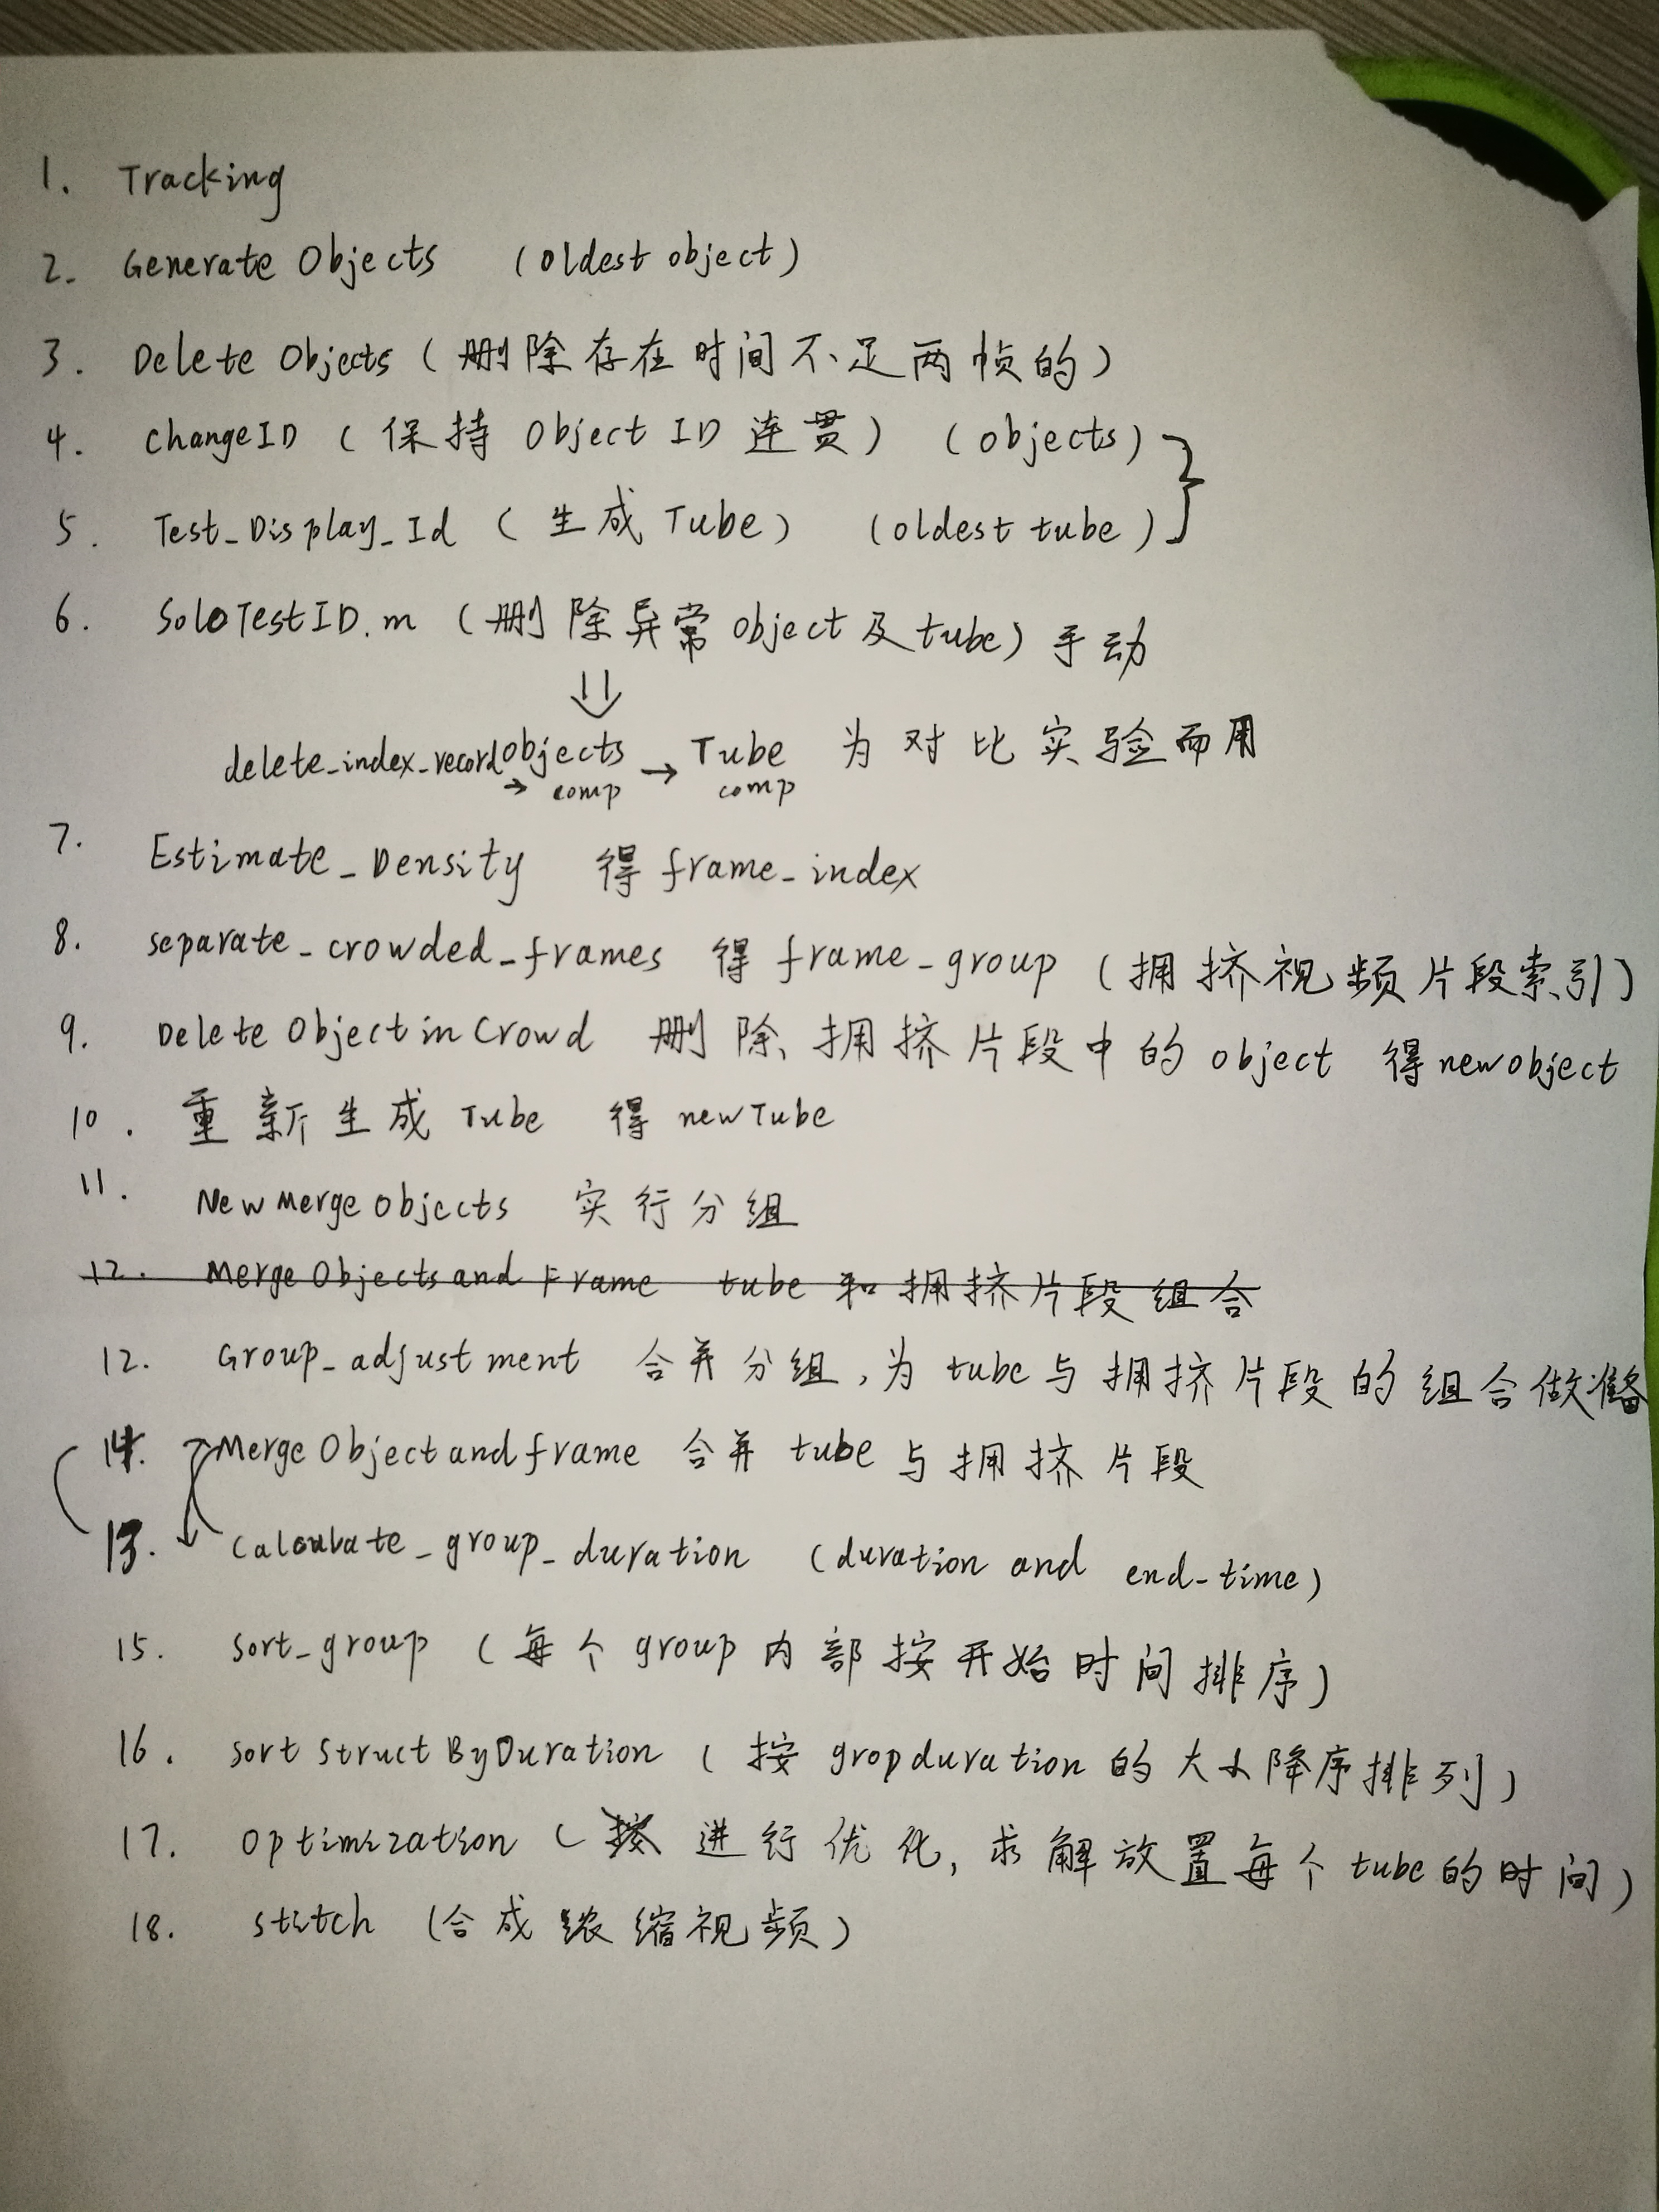 1. Tracking
2. Generate Objects (oldest object)
3. Delete Objects (删除存在时间不足两帧的)
4. changeID (保持 Object ID 连贯) (objects)
5. Test_Display_Id (生成 Tube) (oldest tube)
6. SoloTestID.m (删除异常 object 及 tube) 手动
⇓
delete_index_record → objects → Tube 为对比实验而用
comp comp
7. Estimate_Density 得 frame_index
8. separate_crowded_frames 得 frame_group (拥挤视频片段索引)
9. Delete Object in Crowd 删除拥挤片段中的 object 得 newobject
10. 重新生成 Tube 得 newTube
11. New Merge Objects 实行分组
12. Merge Objects and Frame tube 和拥挤片段组合
12. Group_adjustment 合并分组,为 tube 与拥挤片段的组合做准备
14. Merge Object and frame 合并 tube 与拥挤片段
13. Calculate_group_duration (duration and end_time)
15. sort_group (每个 group 内部按开始时间排序)
16. sort Struct By Duration (按 gropduration 的大小降序排列)
17. Optimization (进行优化, 求解放置每个 tube 的时间)
18. stitch (合成浓缩视频)